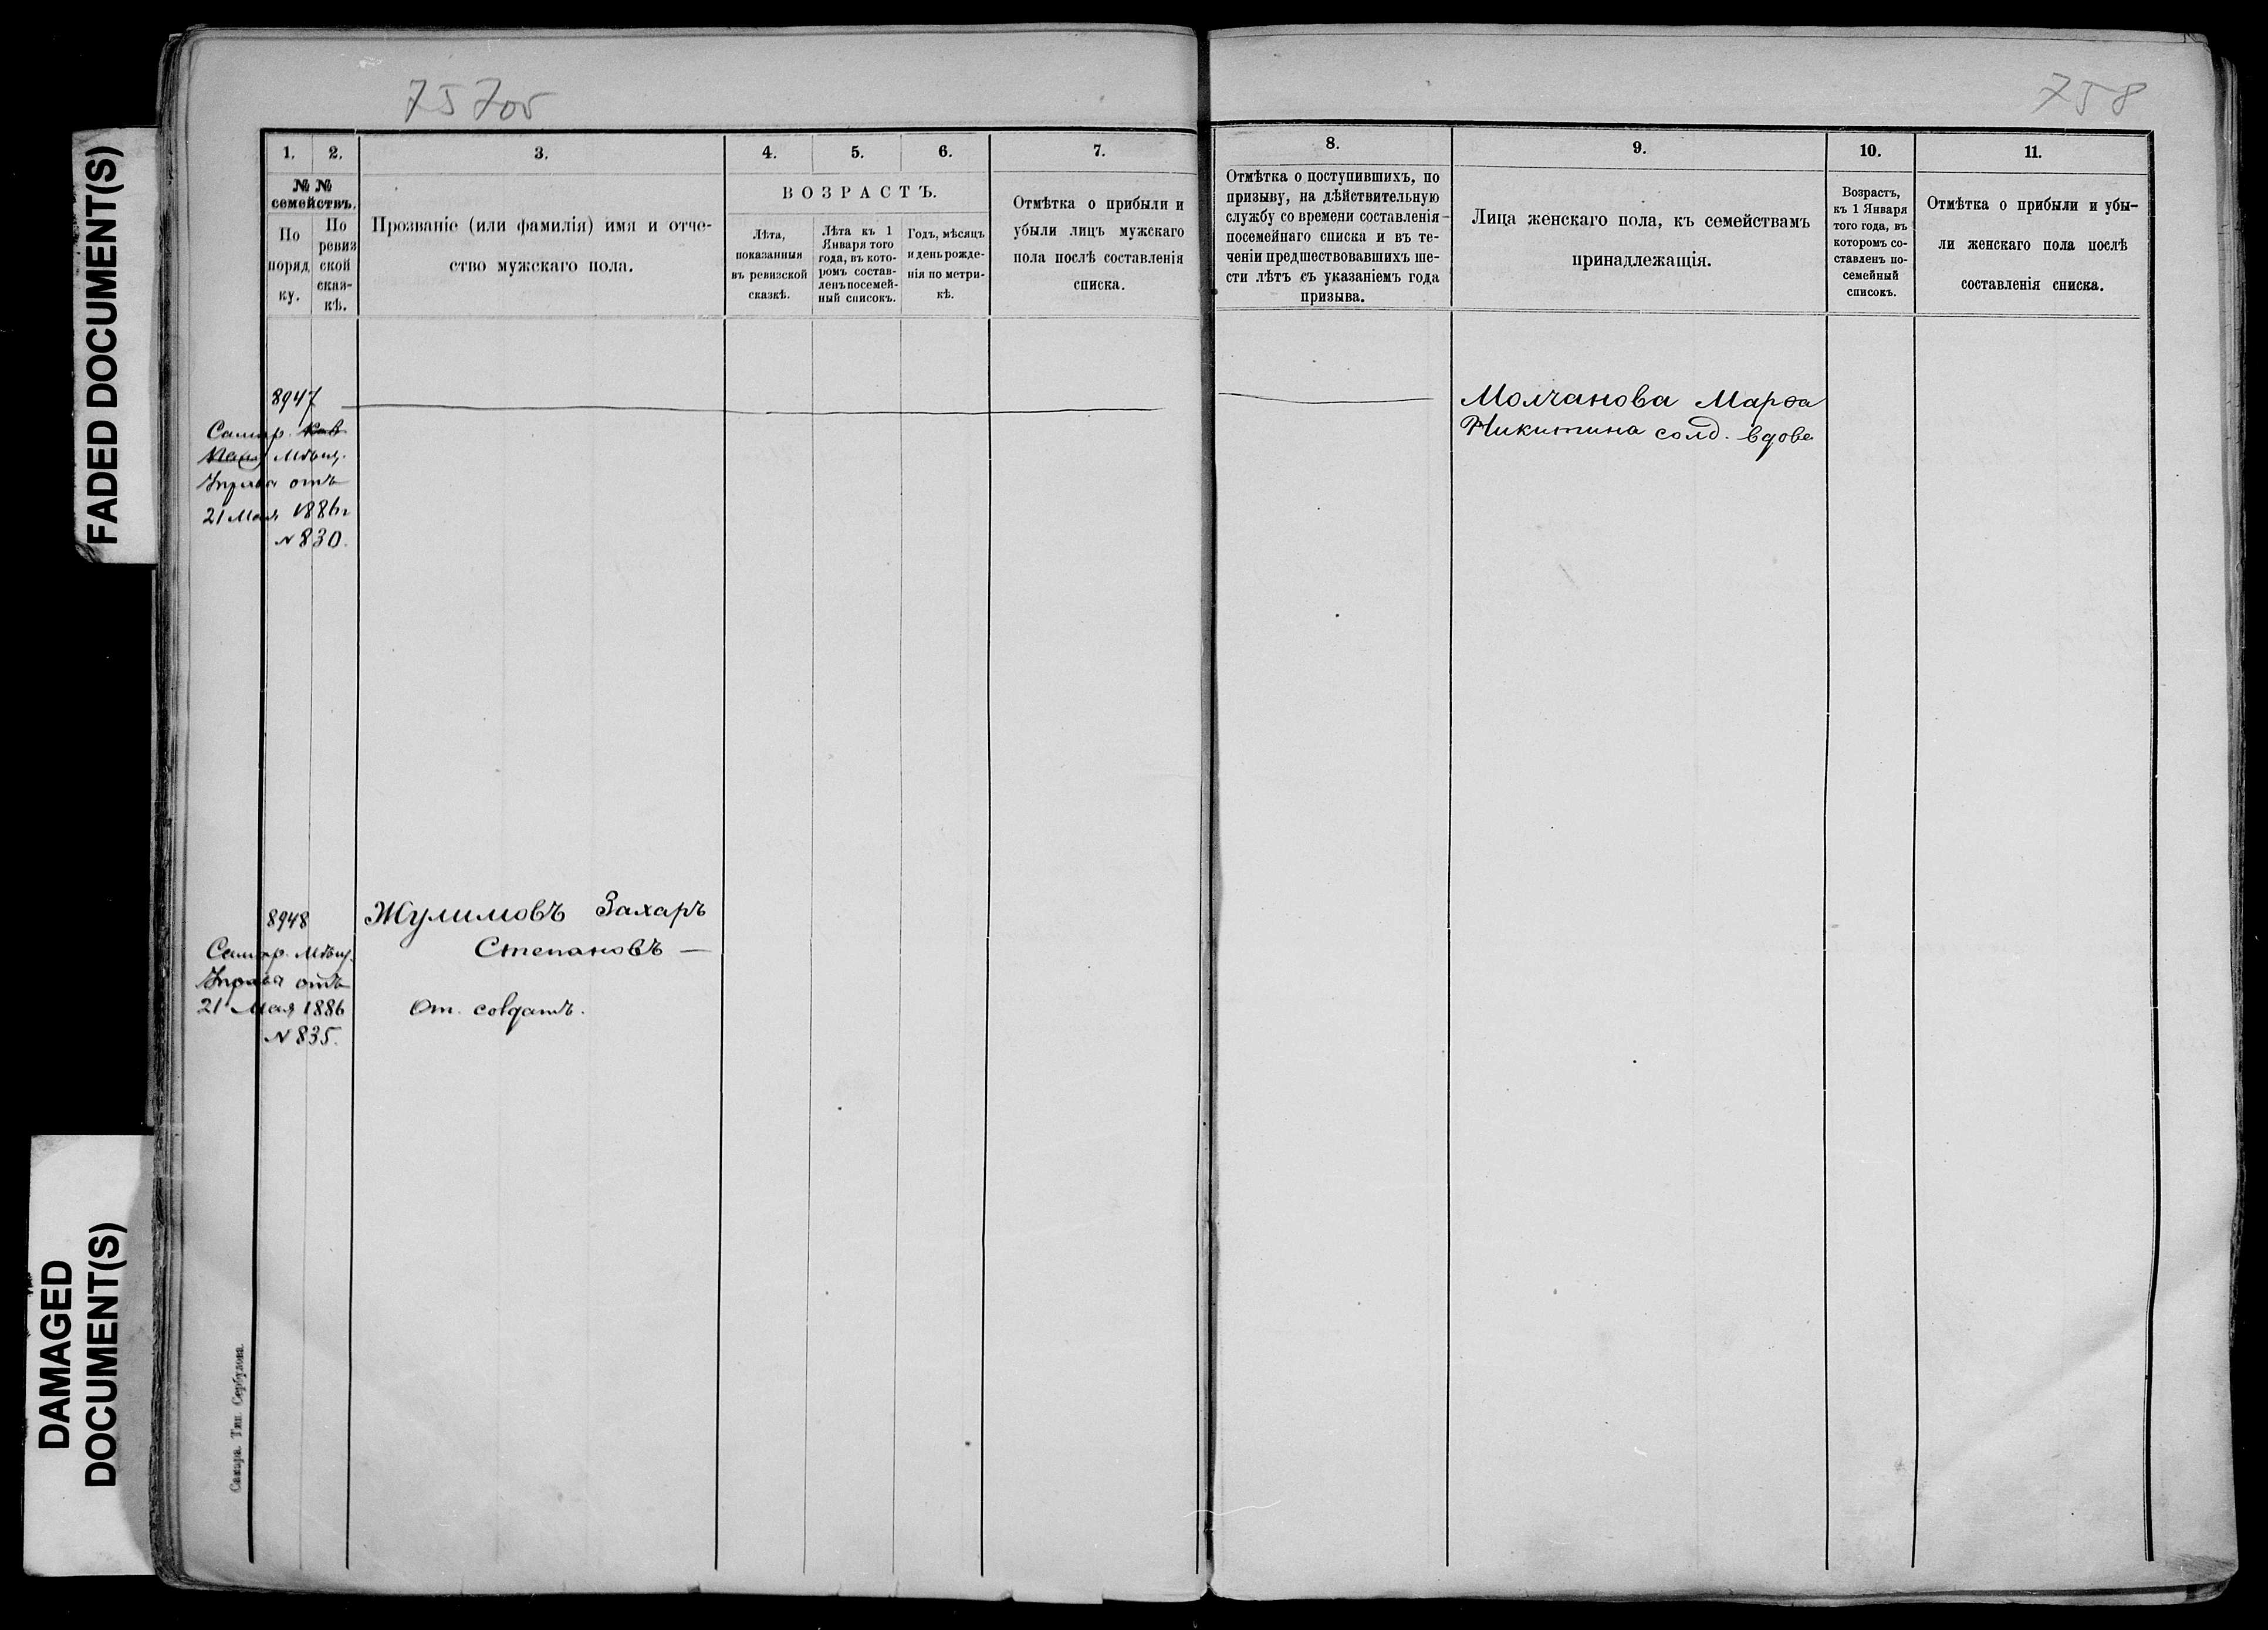 FADED DOCUMENT(S)
DAMAGED
DOCUMENT(S)
757об
1. 2. 3. 4. 5. 6. 7.
№ №
семействъ.
По
поряд
ку.
По
ревиз
ской
сказ-
кѣ.
Прозваніе (или фамилія) имя и отче-
ство мужскаго пола.
ВОЗРАСТЪ.
Лѣта,
показанныя
въ ревизской
сказкѣ.
Лѣта къ 1
Января того
года, въ кото-
ромъ состав-
ленъ посемей-
ный списокъ.
Годъ, мѣсяцъ
и день рожде-
нія по метри-
кѣ.
Отмѣтка о прибыли и
убыли лицъ мужскаго
пола послѣ составленія
списка.
8947
Самар.
Мѣщ.
Управа отъ
21 Мая 1886г
№ 830.
8948
Самар. Мѣщ.
Управа отъ
21 Мая 1886
№ 835.
Жулимовъ Захаръ
Степановъ —
От. солдатъ.
Самара. Тип. Сербулова.
758
8. 9. 10. 11.
Отмѣтка о поступившихъ, по
призыву, на дѣйствительную
службу со времени составленія
посемейнаго списка и въ те-
ченіи предшествовавшихъ ше-
сти лѣтъ съ указаніемъ года
призыва.
Лица женскаго пола, къ семействамъ
принадлежащія.
Возрастъ,
къ 1 Января
того года, въ
которомъ со-
ставленъ по-
семейный
списокъ.
Отмѣтка о прибыли и убы-
ли женскаго пола послѣ
составленія списка.
Молчанова Марѳа
Никитина солд. вдова